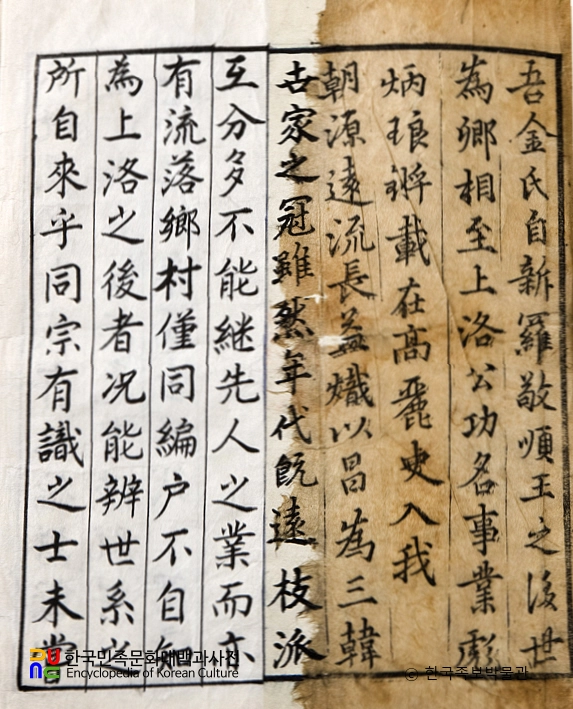 吾金氏自新羅敬順王之後世
為卿相至上洛公功名事業彪
炳琅璘載在高麗史入我
朝源遠流長益熾以昌為三韓
古家之冠雖然年代旣遠枝派
互分多不能継先人之業而亦
有流落鄉村僅同編户不自知
為上洛之後者况能辨世系之
所自來乎同宗有識之士未嘗
한국민족문화대백과사전
Encyclopedia of Korean Culture
© 한국족보박물관